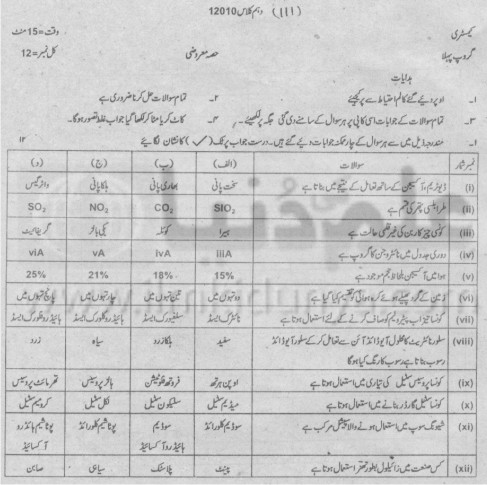 (III) دہم کلاس 12010
کیمسٹری
وقت=15منٹ
گروپ پہلا
حصہ معروضی
کل نمبر=12
ہدایات
۱۔ اوپر دیے گئے کالم احتیاط سے پُر کیجئے
۲۔ تمام سوالات حل کرنا ضروری ہے
۳۔ تمام سوالات کے جوابات اسی کاپی پر ہر سوال کے سامنے دی گئی جگہ پر لکھیئے۔
۴۔ کاٹ کر یا مٹا کر لکھا گیا جواب غلط تصور ہوگا۔
۱۔ مندرجہ ذیل میں سے ہر سوال کے چار ممکنہ جوابات دیے گئے ہیں۔ درست جواب پر ٹک (✓) کا نشان لگائیے ۱۲
نمبر شمار سوالات (الف) (ب) (ج) (د)
(i) ڈیوٹریم، آکسیجن کے ساتھ تعامل کے نتیجے میں بناتا ہے سخت پانی بھاری پانی ہلکا پانی واٹر گیس
(ii) کی قسم ہے SIO₂ CO₂ NO₂ SO₂
(iii) کونسی چیز کاربن کی غیر قلمی حالت ہے ہیرا کوئلہ بکی بالز گریفائیٹ
(iv) دوری جدول میں نائٹروجن کا گروپ ہے iiiA ivA vA viA
(v) ہوا میں آکسیجن بلحاظ حجم موجود ہے 15% 18% 21% 25%
(vi) زمین کے گرد لپٹے ہوئے کرہ ہوائی کو تقسیم کیا گیا ہے دو تہوں میں تین تہوں میں چار تہوں میں پانچ تہوں میں
(vii) کونسا تیزاب پیٹرولیم کو صاف کرنے کے لئے استعمال ہوتا ہے نائٹرک ایسڈ سلفیورک ایسڈ ہائیڈروکلورک ایسڈ ہائیڈروفلورک ایسڈ
(viii) سلور نائٹریٹ کا محلول آئیوڈائڈ آئن سے تعامل کر کے سلور آئیوڈائڈ سفید ہلکا زرد سیاہ زرد
رسوب بناتا ہے رسوب کا رنگ کیا ہوگا
(ix) کونسا پروسیس سٹیل کی تیاری میں استعمال ہوتا ہے اوپن ہرتھ فروتھ فلوٹیشن بائر پروسیس تھرمائٹ پروسیس
(x) کونسا سٹیل گارڈر بنانے میں استعمال ہوتا ہے میڈیم سٹیل سلیکون سٹیل نکل سٹیل کرومیم سٹیل
(xi) شیونگ سوپ میں استعمال ہونے والا کیمیکل مرکب ہے سوڈیم کلورائڈ سوڈیم پوٹاشیم کلورائڈ پوٹاشیم ہائڈرو
ہائیڈرو آکسائیڈ آکسائیڈ
(xii) کس صنعت میں زائیلول بطور تھنر استعمال ہوتا ہے پینٹ پلاسٹک سیاہی صابن